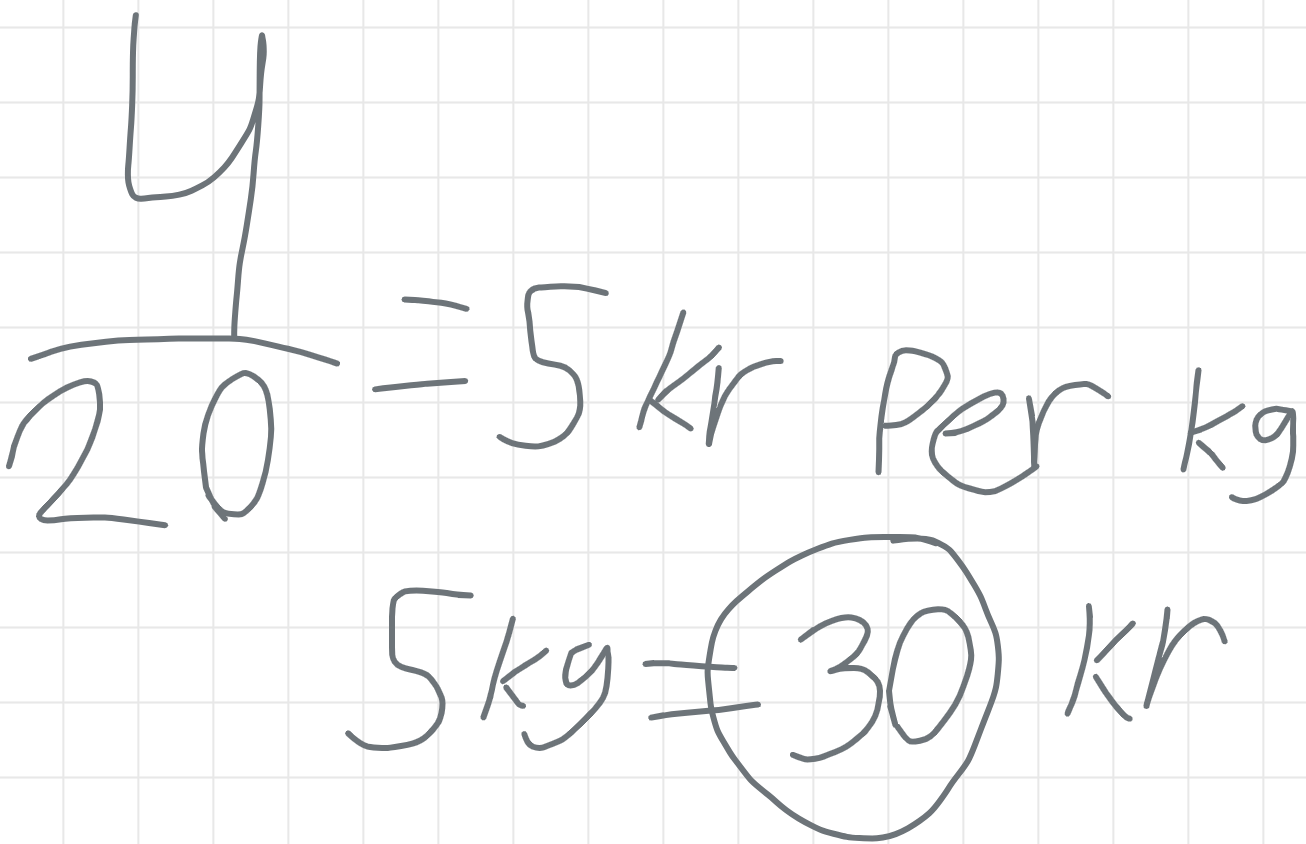 4
20 = 5 kr Per kg
5 kg = 30 kr